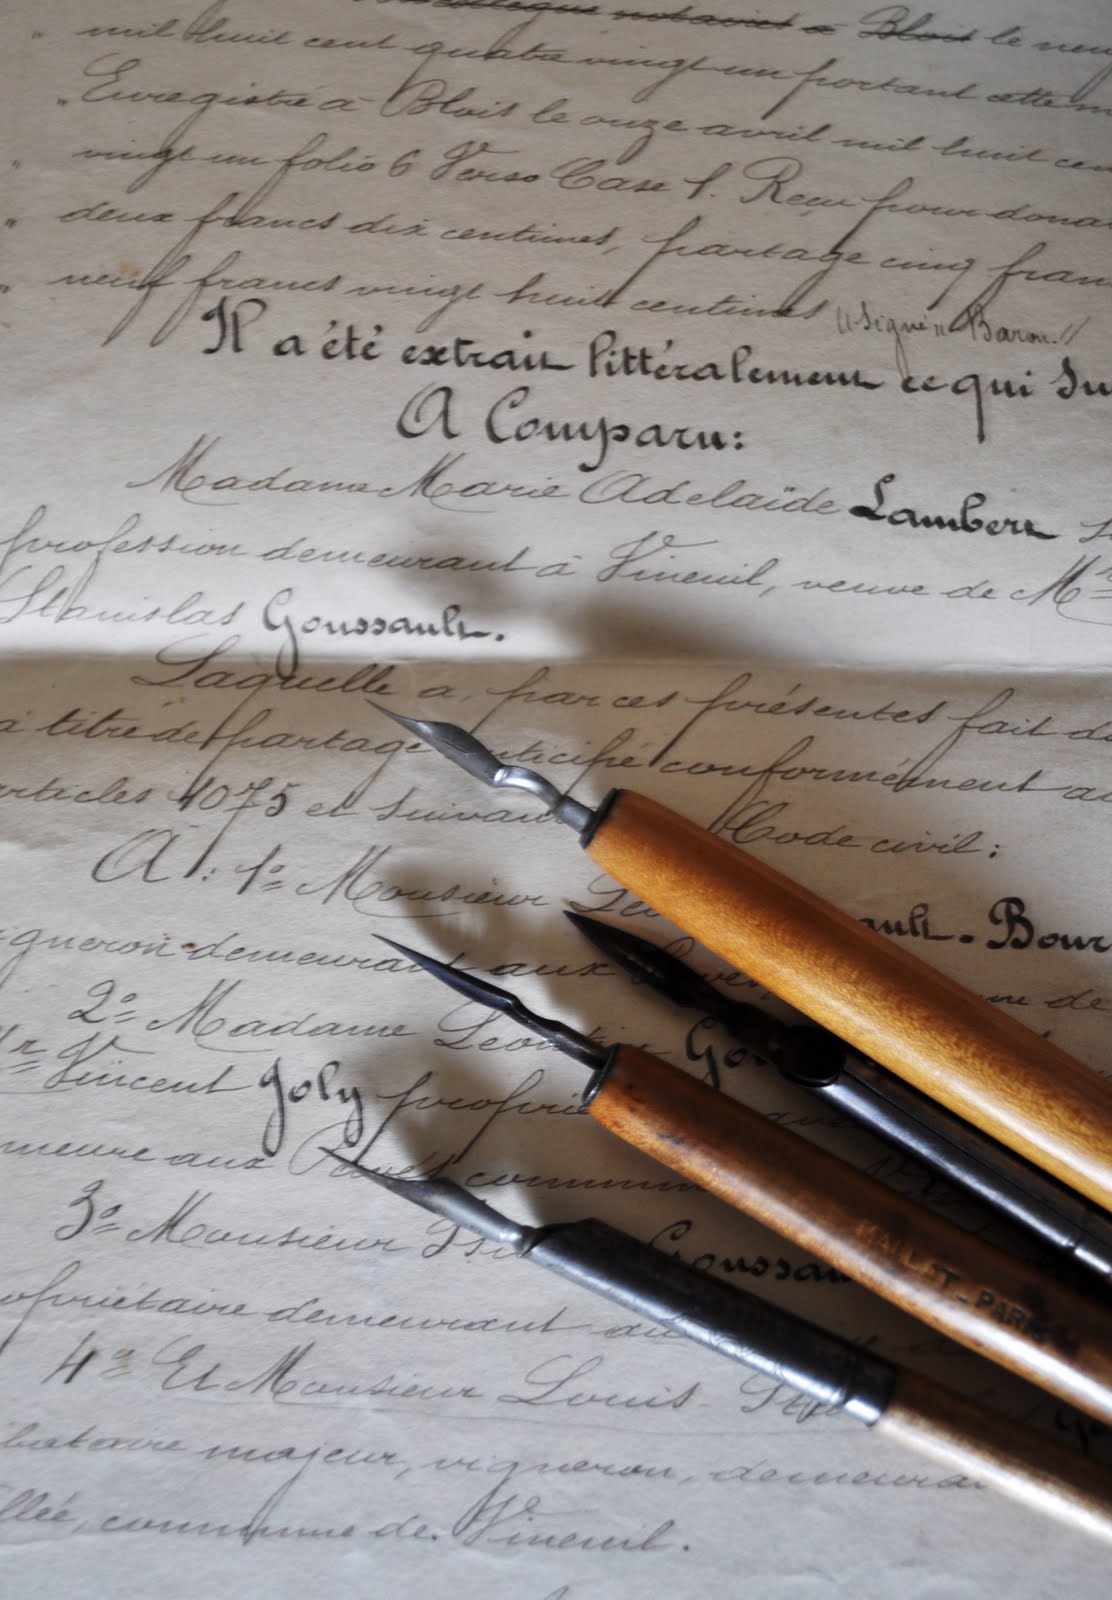 notaire à Blois le neuf
" mil huit cent quatre vingt un portant cette m
" Enregistré à Blois le onze avril mil huit cen
" vingt un folio 6 Verso Case 1. Reçu pour dona
" deux francs dix centimes, partage cinq fran
" neuf francs vingt huit centimes "Signé" Baron."
Il a été extrait littéralement ce qui Su
A Comparu:
Madame Marie Adelaïde Lambert
profession demeurant à Vineuil, veuve de Mr
Stanislas Goussault.
Laquelle a, par ces présentes fait d
à titre de partage anticipé conformément au
articles 1075 et suivan Code civil:
A: 1° Monsieur ault-Bour
gneron demeurant aux de
2° Madame Leontine Go
Mr Vincent Joly proprié
meure aux Pavés commun
3° Monsieur Goussau
opriétaire demeurant au
4° Et Monsieur Louis-
bataire majeur, vigneron, demeuran
llée, commune de Vineuil.
MALLAT-PARIS